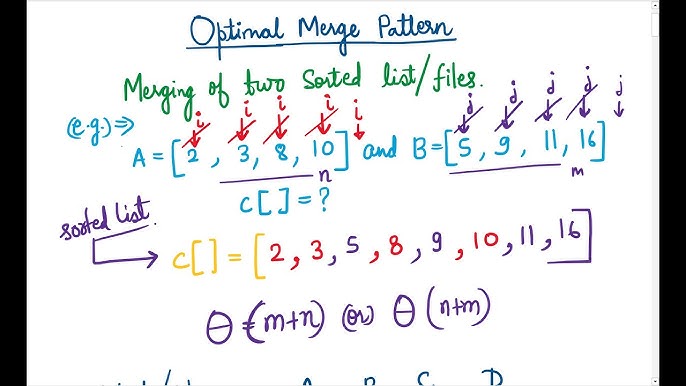 Optimal Merge Pattern
Merging of two sorted list/files.
i i i i i j j j j j
(e.g.) ⇒ A = [2, 3, 8, 10] and B = [5, 9, 11, 16]
n m
C[ ] = ?
sorted list.
C[ ] = [2, 3, 5, 8, 9, 10, 11, 16]
θ = (m+n) (or) θ (n+m)